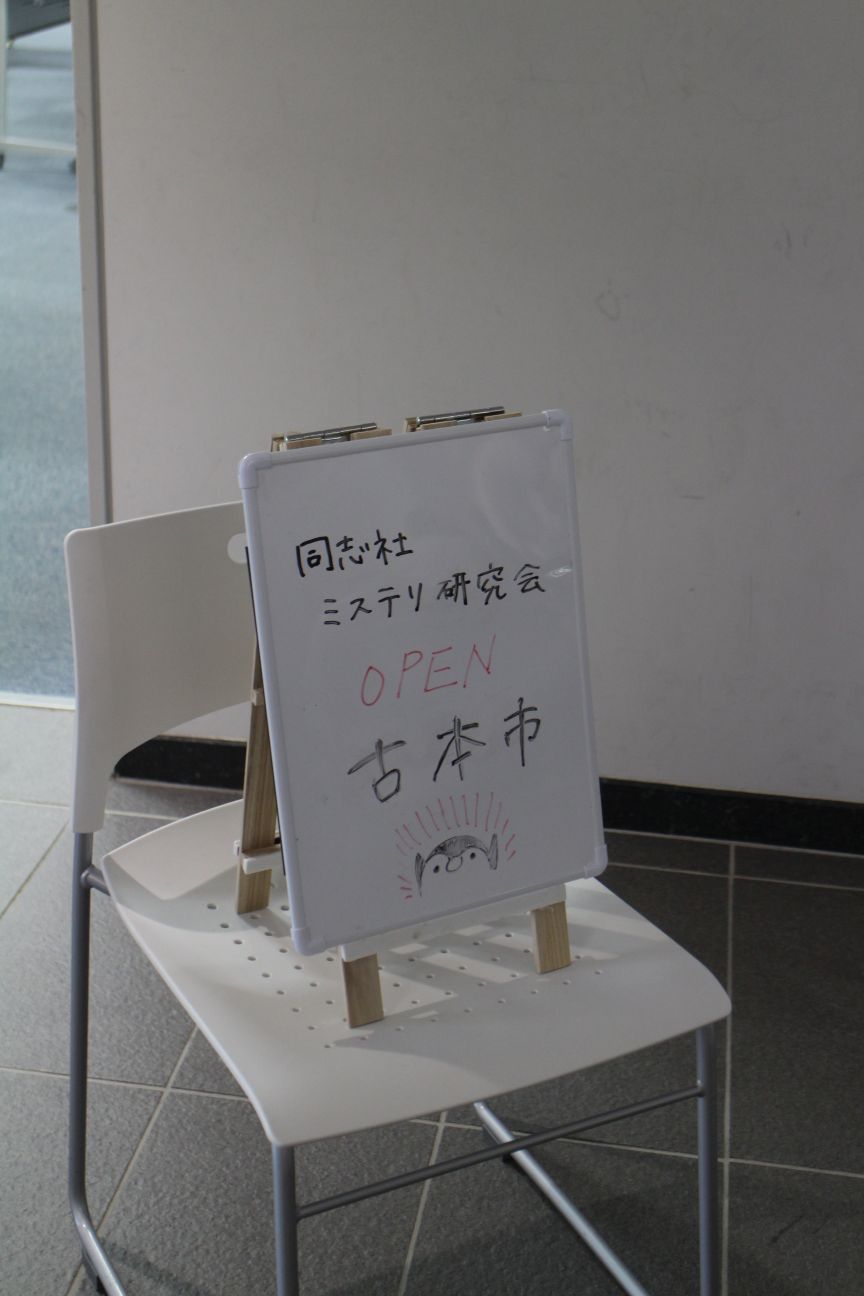 同志社
ミステリ研究会
OPEN
古本市